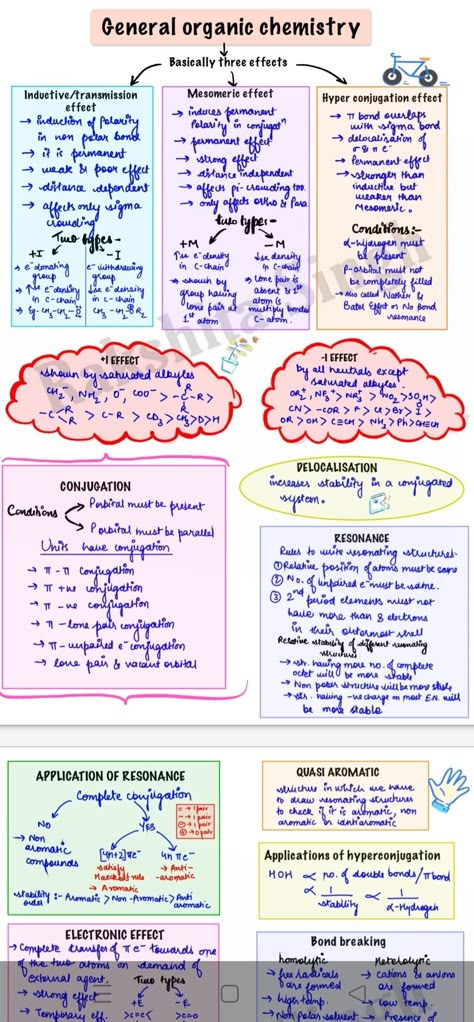 General organic chemistry
Basically three effects
Inductive/transmission
effect
→ Induction of Polarity
in non polar bond
→ it is permanent
→ weak & poor effect
→ distance dependent
→ affects only sigma
crowding
Two types-
+I
→ e⁻ donating
group
→ ↑se e⁻ density
in c-chain
-I
e⁻ withdrawing
group
↓se e⁻ density
in c-chain
Mesomeric effect
→ induces permanent
Polarity in conjugatⁿ
→ permanent effect
→ strong effect
→ distance independent
→ affects pi-crowding too.
→ only affects ortho & Para
two type:-
+M
↑se e⁻ density
in C-chain
→ shown by
group having
lone pair at
1st atom
-M
↓se density
in C-chain
→ lone pair is
absent & 1st
atom is
multiply bonded
C-atom.
Hyper conjugation effect
→ π bond overlaps
with sigma bond
→ delocalisation of
σ & π e⁻
→ Permanent effect
→ stronger than
inductive but
weaker than
Mesomeric.
Conditions:-
α-Hydrogen must
be present
P-orbital must not
be completely filled
→ Also called Nathen &
Batel Effect or No Bond
resonance
+I EFFECT
shown by saturated alkyles
-I EFFECT
by all neutrals except
saturated alkyles.
CONJUGATION
Conditions
P orbital must be present
P orbital must be parallel
Units have conjugation
→ π - π conjugation
→ π +ve conjugation
→ π -ve conjugation
→ π - lone pair conjugation
→ π - unpaired e⁻ conjugation
→ lone pair & vacant orbital
DELOCALISATION
increases stability in a conjugated
system.
RESONANCE
Rules to write resonating structures-
① Relative position of atoms must be same
② No. of unpaired e⁻ must be same.
③ 2nd period elements must not
have more than 8 electrons
in their outermost shell
Relative stability of different resonating
structures
→ str. having more no. of complete
octet will be more stable
→ Non polar structure will be more stable
→ str. having -ve charge on most E.N. will
be more stable
APPLICATION OF RESONANCE
Complete conjugation
NO
→ Non
aromatic
compounds
YES
[4n+2]πe⁻
satisfy
Huckel rule
→ Aromatic
4n πe⁻
→ Anti-
aromatic
stability
order :- Aromatic > Non-Aromatic > Anti
aromatic
QUASI AROMATIC
structure in which we have
to draw resonating structures
to check if it is aromatic, non
aromatic or antiaromatic
Applications of hyperconjugation
HOH ∝ no. of double bonds/π bond
∝ 1/stability ∝ 1/α-Hydrogen
ELECTRONIC EFFECT
→ Complete transfer of πe⁻ towards one
of the two atoms on demand of
external agent.
→ strong effect
→ Temporary eff.
Two types
+E
>c=c<
-E
>c=o
Bond breaking
homolytic
→ free radicals
are formed
→ high temp.
→ Non Polar solvent
Heterolytic
→ cations & anions
are formed
→ low temp.
→ Presence of